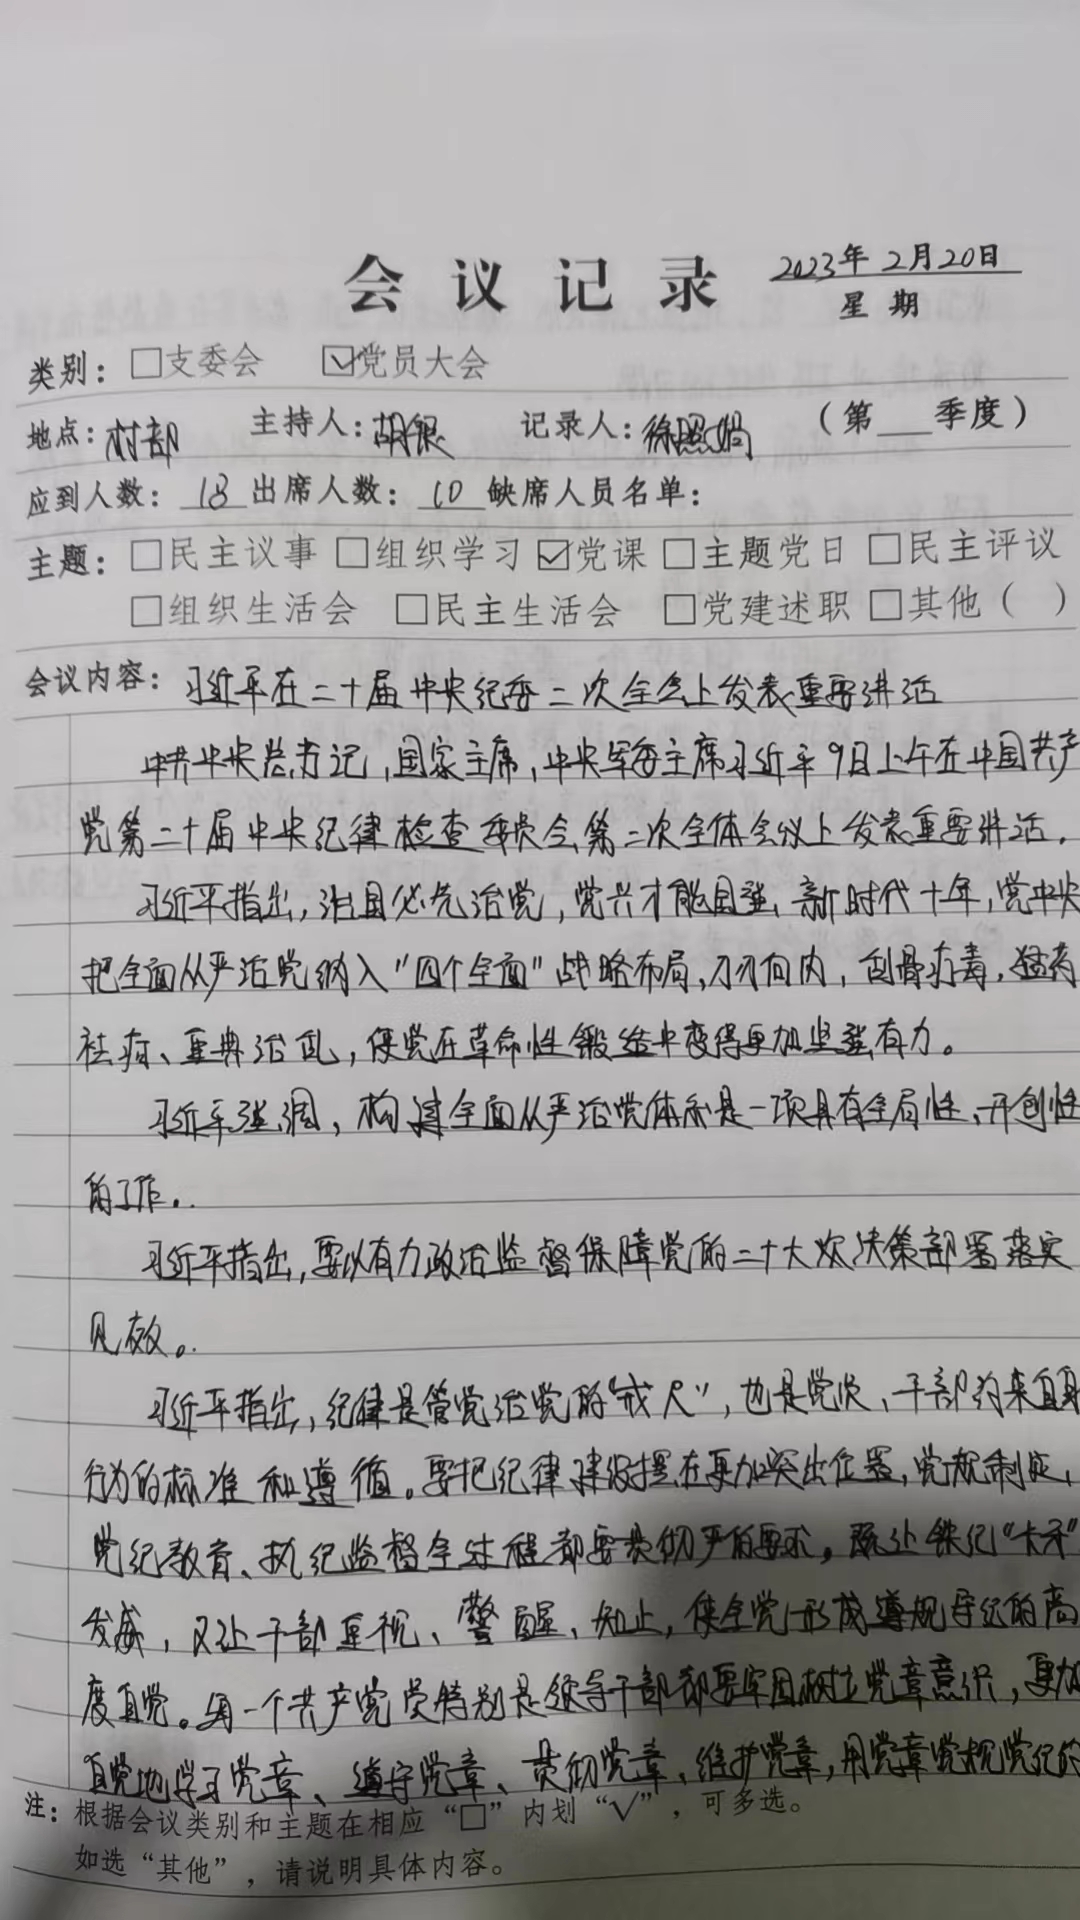 会议记录 2023年2月20日
星期
类别：□支委会 ☑党员大会
地点：村部 主持人：胡银 记录人：徐照娟 （第 季度）
应到人数：18 出席人数：10 缺席人员名单：
主题：□民主议事 □组织学习 ☑党课 □主题党日 □民主评议
□组织生活会 □民主生活会 □党建述职 □其他（ ）
会议内容：习近平在二十届中央纪委二次全会上发表重要讲话
中共中央总书记，国家主席，中央军委主席习近平9日上午在中国共产
党第二十届中央纪律检查委员会第二次全体会议上发表重要讲话。
习近平指出，治国必先治党，党兴才能国强，新时代十年，党中央
把全面从严治党纳入“四个全面”战略布局，刀刃向内，刮骨疗毒，猛药
祛疴、重典治乱，使党在革命性锻造中变得更加坚强有力。
习近平强调，构建全面从严治党体系是一项具有全局性、开创性
的工作。
习近平指出，要以有力政治监督保障党的二十大次决策部署落实
见效。
习近平指出，纪律是管党治党的“戒尺”，也是党员、干部约束自身
行为的标准和遵循。要把纪律建设摆在更加突出位置，党规制定，
党纪教育、执纪监督全过程都要贯彻严的要求，既让铁纪“长牙”
发威，又让干部重视、警醒、知止，使全党形成遵规守纪的高
度自觉。每一个共产党员特别是领导干部都要牢固树立党章意识，更加
自觉地学习党章、遵守党章、贯彻党章、维护党章，用党章党规党纪约
注：根据会议类别和主题在相应“□”内划“√”，可多选。
如选“其他”，请说明具体内容。